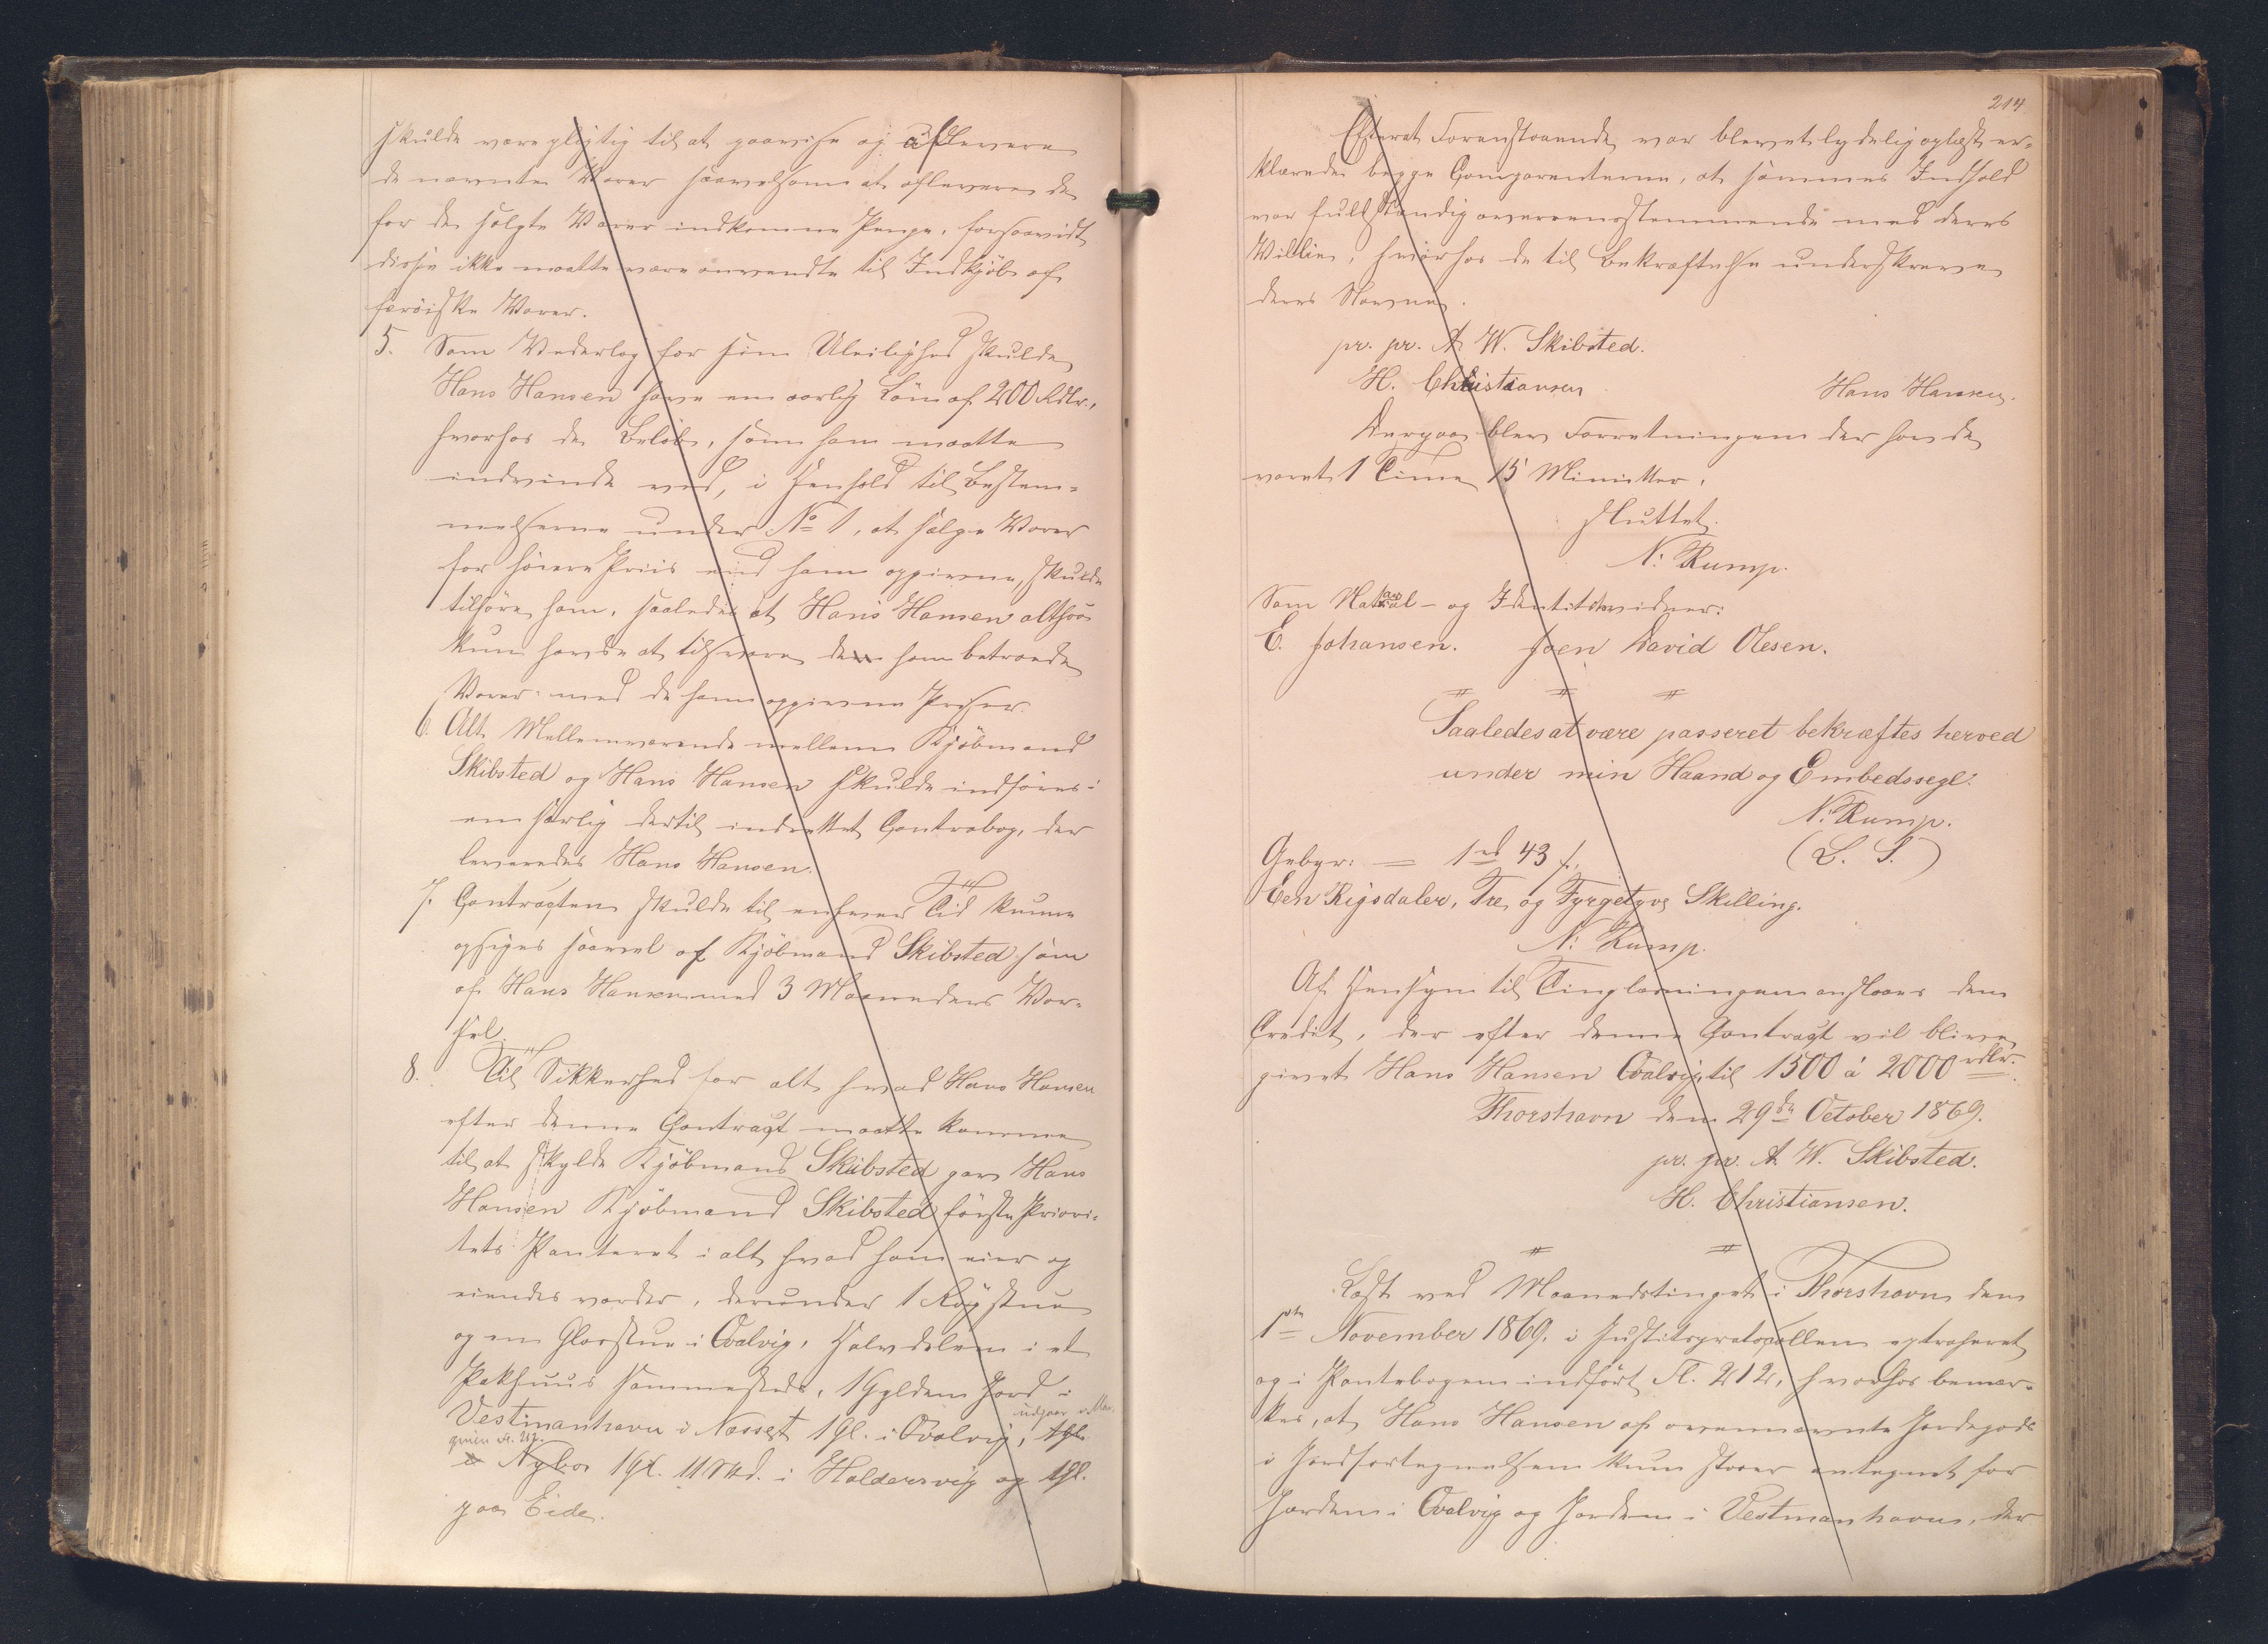 skulde være pligtig til at paavise og aflevere
de nævnte Varer saavelsom at aflevere de
for de solgte Varer indkomne Penge, forsaavidt
disse ikke maatte være anvendte til Indkjøb af
færøiske Varer.
5. Som Vederlag for sin Uleilighed skulde
Hans Hansen have en aarlig Løn af 200 Rdlr.,
hvorhos de Beløb, som han maatte
indvinde ved, i Henhold til Bestem-
melserne under No 1, at sælge Varer
for høiere Priis end ham opgivne, skulde
tilhøre ham, saaledes at Hans Hansen altsaa
kun havde at tilsvare de ham betroede
Varer med de ham opgivne Priser.
6. Alt Mellemværende mellem Kjøbmand
Skibsted og Hans Hansen skulde indføres i
en særlig dertil indrettet Contrabog, der
leveredes Hans Hansen.
7. Contracten skulde til enhver Tid kunne
opsiges saavel af Kjøbmand Skibsted som
af Hans Hansen med 3 Maaneders Var-
sel.
8. Til Sikkerhed for alt hvad Hans Hansen
efter denne Contract maatte komme
til at skylde Kjøbmand Skibsted gav Hans
Hansen Kjøbmand Skibsted første Priori-
tets Panteret i alt hvad han eier og
eiendes vorder, derunder 1 Røgstue
og en Glasstue i Qvalvig, Halvdelen i et
Pakhuus sammesteds, 1 Gylden Jord i
Vestmanhavn i Nesset 1 Gl. i Qvalvig, 1 Gl.
udgaaer v. Mar-
ginen
i Nybo 1 Gl. 11 Skd. i Haldersvig og 1 Gl.
paa Eide.
214
Efterat Foranstaaende var blevet lydelig oplæst er-
klærede begge Comparenterne, at sammes Indhold
var fuldstændig overeensstemmende med deres
Villie, hvorhos de til Bekræftelse underskreve
deres Navne.
pr. pr. A. W. Skibsted.
H. Christiansen Hans Hansen.
Derpaa blev Forretningen der havde
varet 1 Time 15 Minutter,
sluttet.
N: Rump.
Som Notarial- og Identitetsvidner:
E. Johansen. Joen David Olesen.
Saaledes at være passeret bekræftes herved
under min Haand og Embedssegl.
N: Rump.
(L. S.)
Gebyr: = 1 rd 43 s.
Een Rigsdaler, Tre og Fyrgetyve Skilling.
N: Rump.
Af Hensyn til Tinglæsningen anslaaes den
Credit, der efter denne Contract vil blive
givet Hans Hansen Qvalvig til 1500 à 2000 rdlr.
Thorshavn den 29de October 1869.
pr. pr. A. W. Skibsted.
H. Christiansen.
Læst ved Maanedstinget i Thorshavn den
1ste November 1869, i Justitsprotocollen extraheret
og i Pantebogen indført Fl. 212, hvorhos bemær-
kes, at Hans Hansen af ovennævnte Jordegods
i Jordfortegnelsen kun staaer antegnet for
Jorden i Qvalvig og Jorden i Vestmanhavn, der